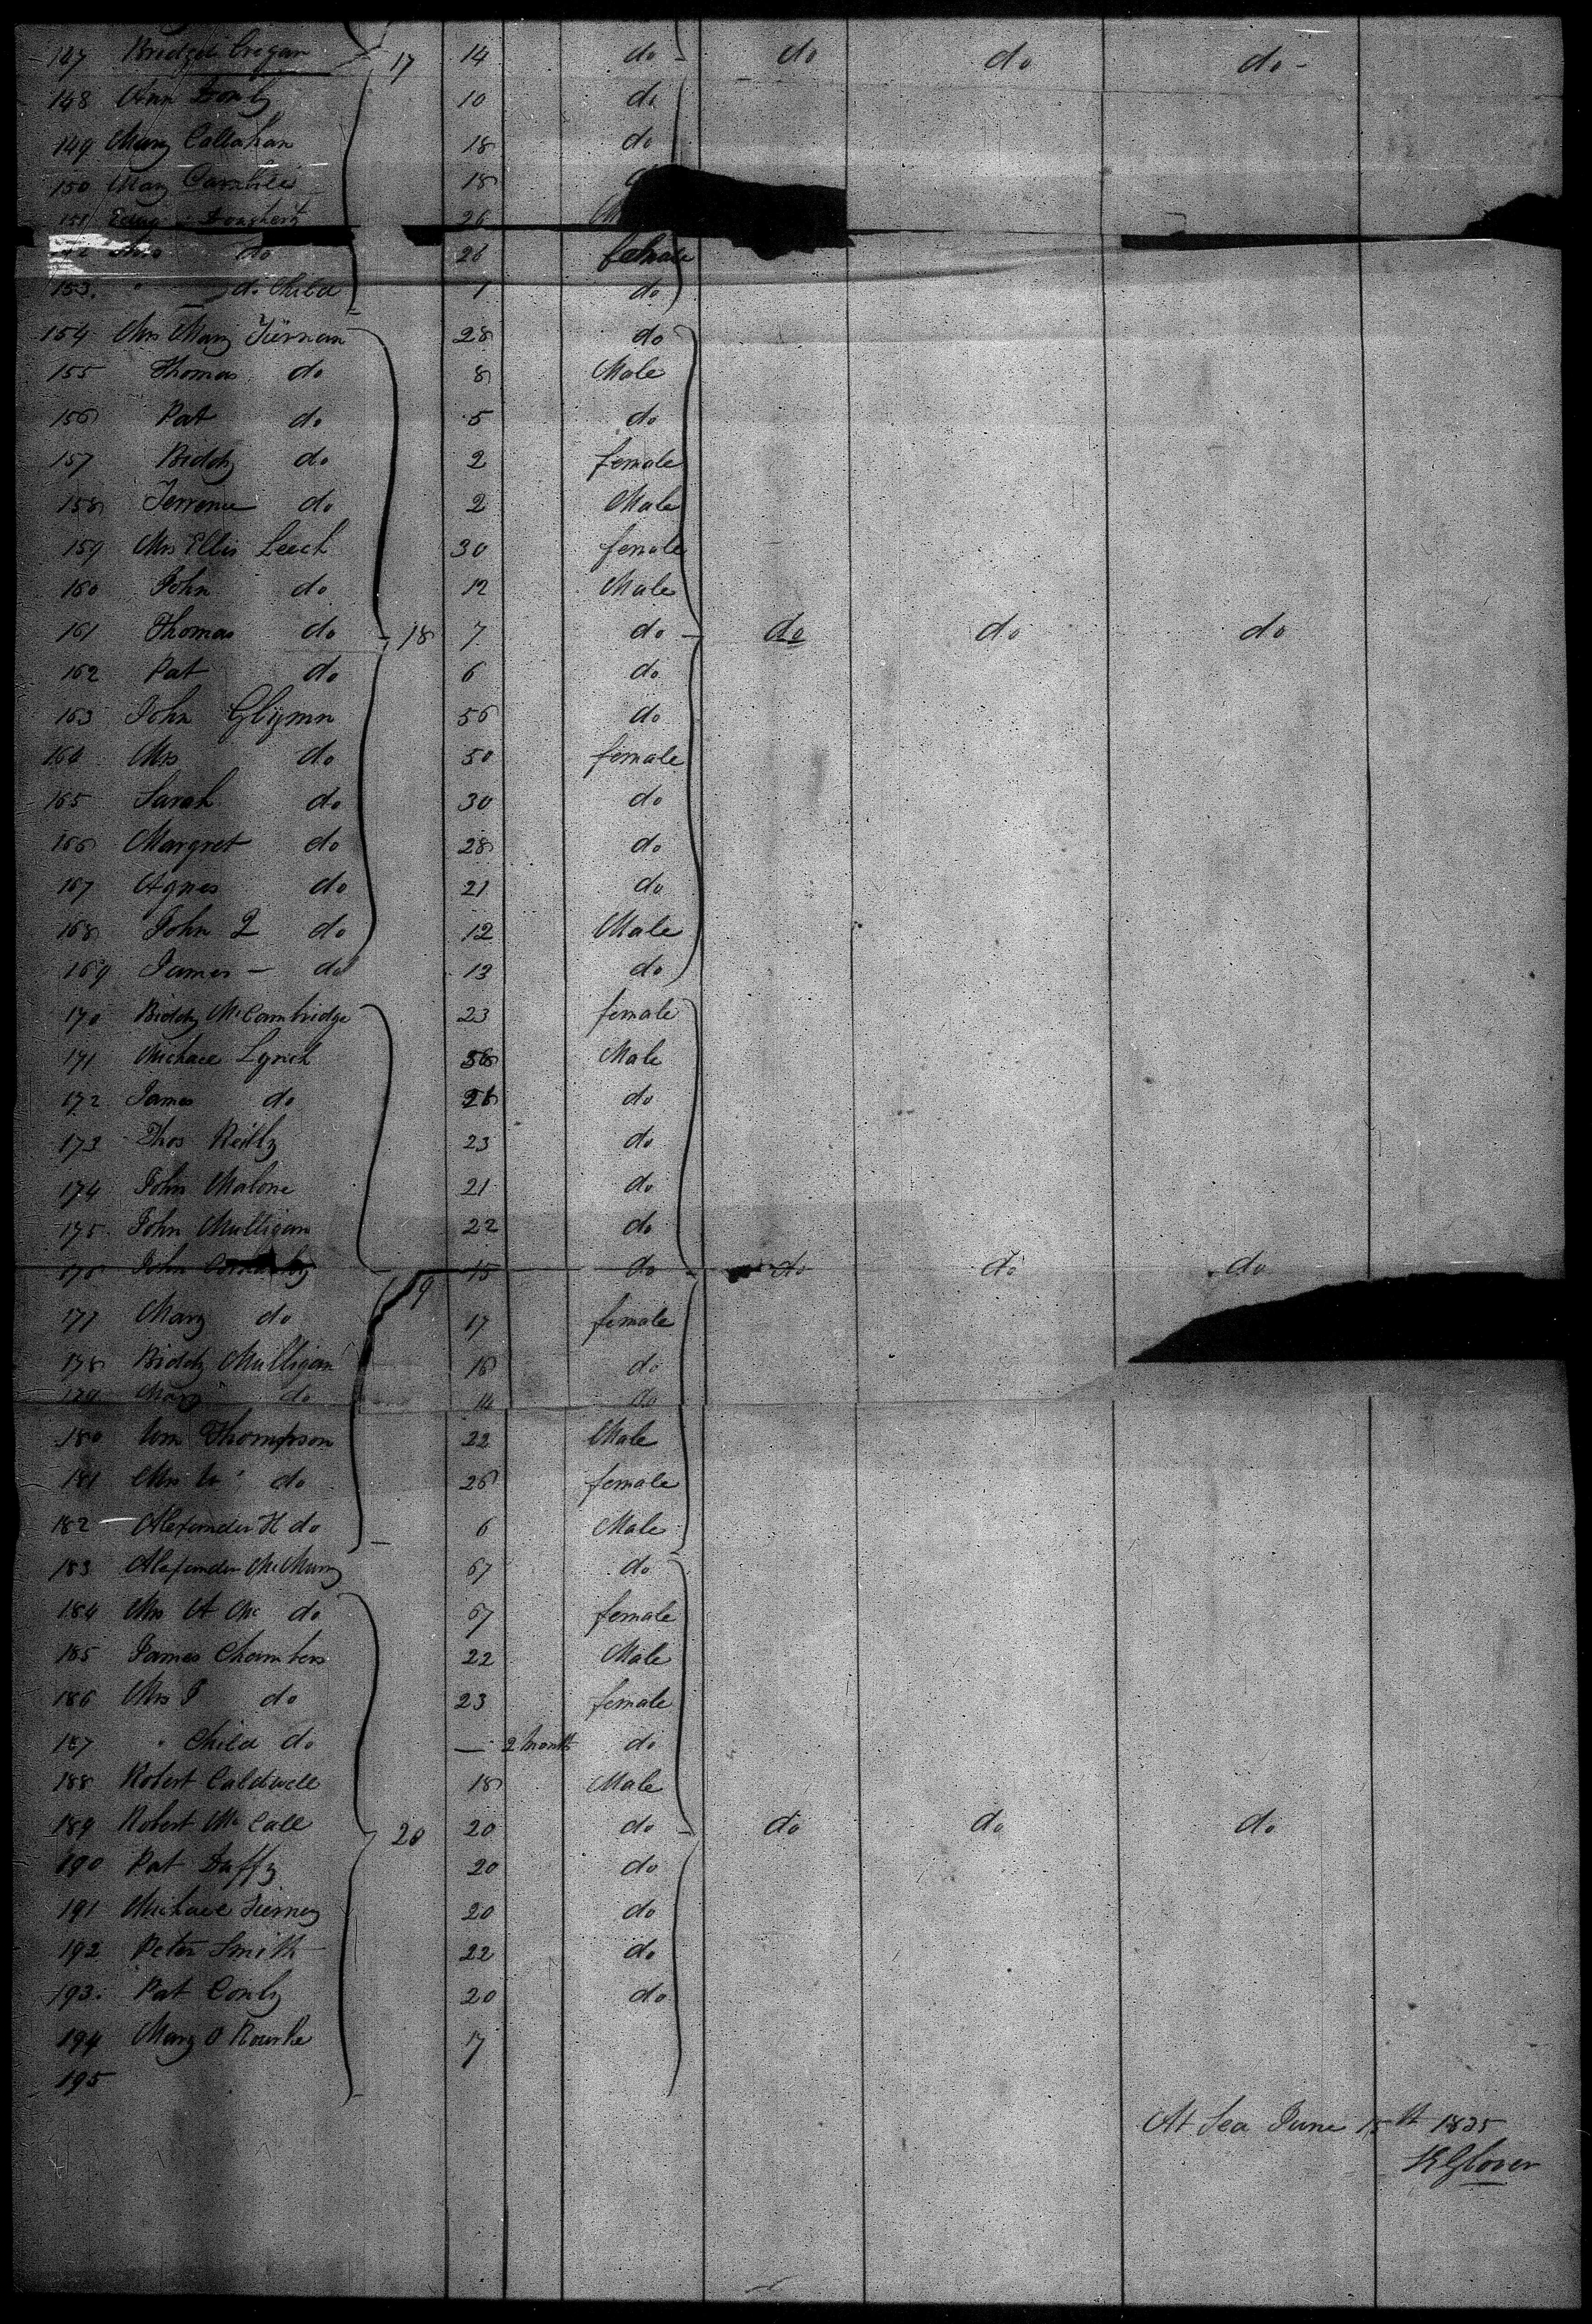 147 Bridget Cregan 17 14 do do do do
148 Ann Donly 10 do
149 Mary Callahan 18 do
150 Mary 18
151 Dougherty 26
Mrs do 26 female
153 " do Child 1 do
154 Mrs Mary Tiernan 28 do
155 Thomas do 8 Male
156 Pat do 5 do
157 Biddy do 2 female
158 Terrence do 2 Male
159 Mrs Ellis Leech 30 female
160 John do 12 Male
161 Thomas do 18 7 do do do do
162 Pat do 6 do
163 John Glynn 56 do
164 Mrs do 50 female
165 Sarah do 30 do
166 Margret do 28 do
167 Agnes do 21 do
168 John 2 do 12 Male
169 James - do 13 do
170 Biddy McCambridge 23 female
171 Michael Lynch Male
172 James do do
173 Thos Reilly 23 do
174 John Malone 21 do
175 John Mulligan 22 do
176 John 15 do do do do
177 Mary do 19 17 female
178 Biddy Mulligan 16 do
179 Mary do 14 do
180 Wm Thompson 22 Male
181 Mrs W do 26 female
182 Alexander H do 6 Male
183 Alexander McMurry 67 do
184 Mrs A Mc do 67 female
185 James Chambers 22 Male
186 Mrs J do 23 female
187 " Child do — 2 months do
188 Robert Caldwell 18 Male
189 Robert McCall 20 20 do do do do
190 Pat Duffy 20 do
191 Michael Tierney 20 do
192 Peter Smith 22 do
193 Pat Conly 20 do
194 Mary O Rourke 17
195
At Sea June 15th 1835
R Glover